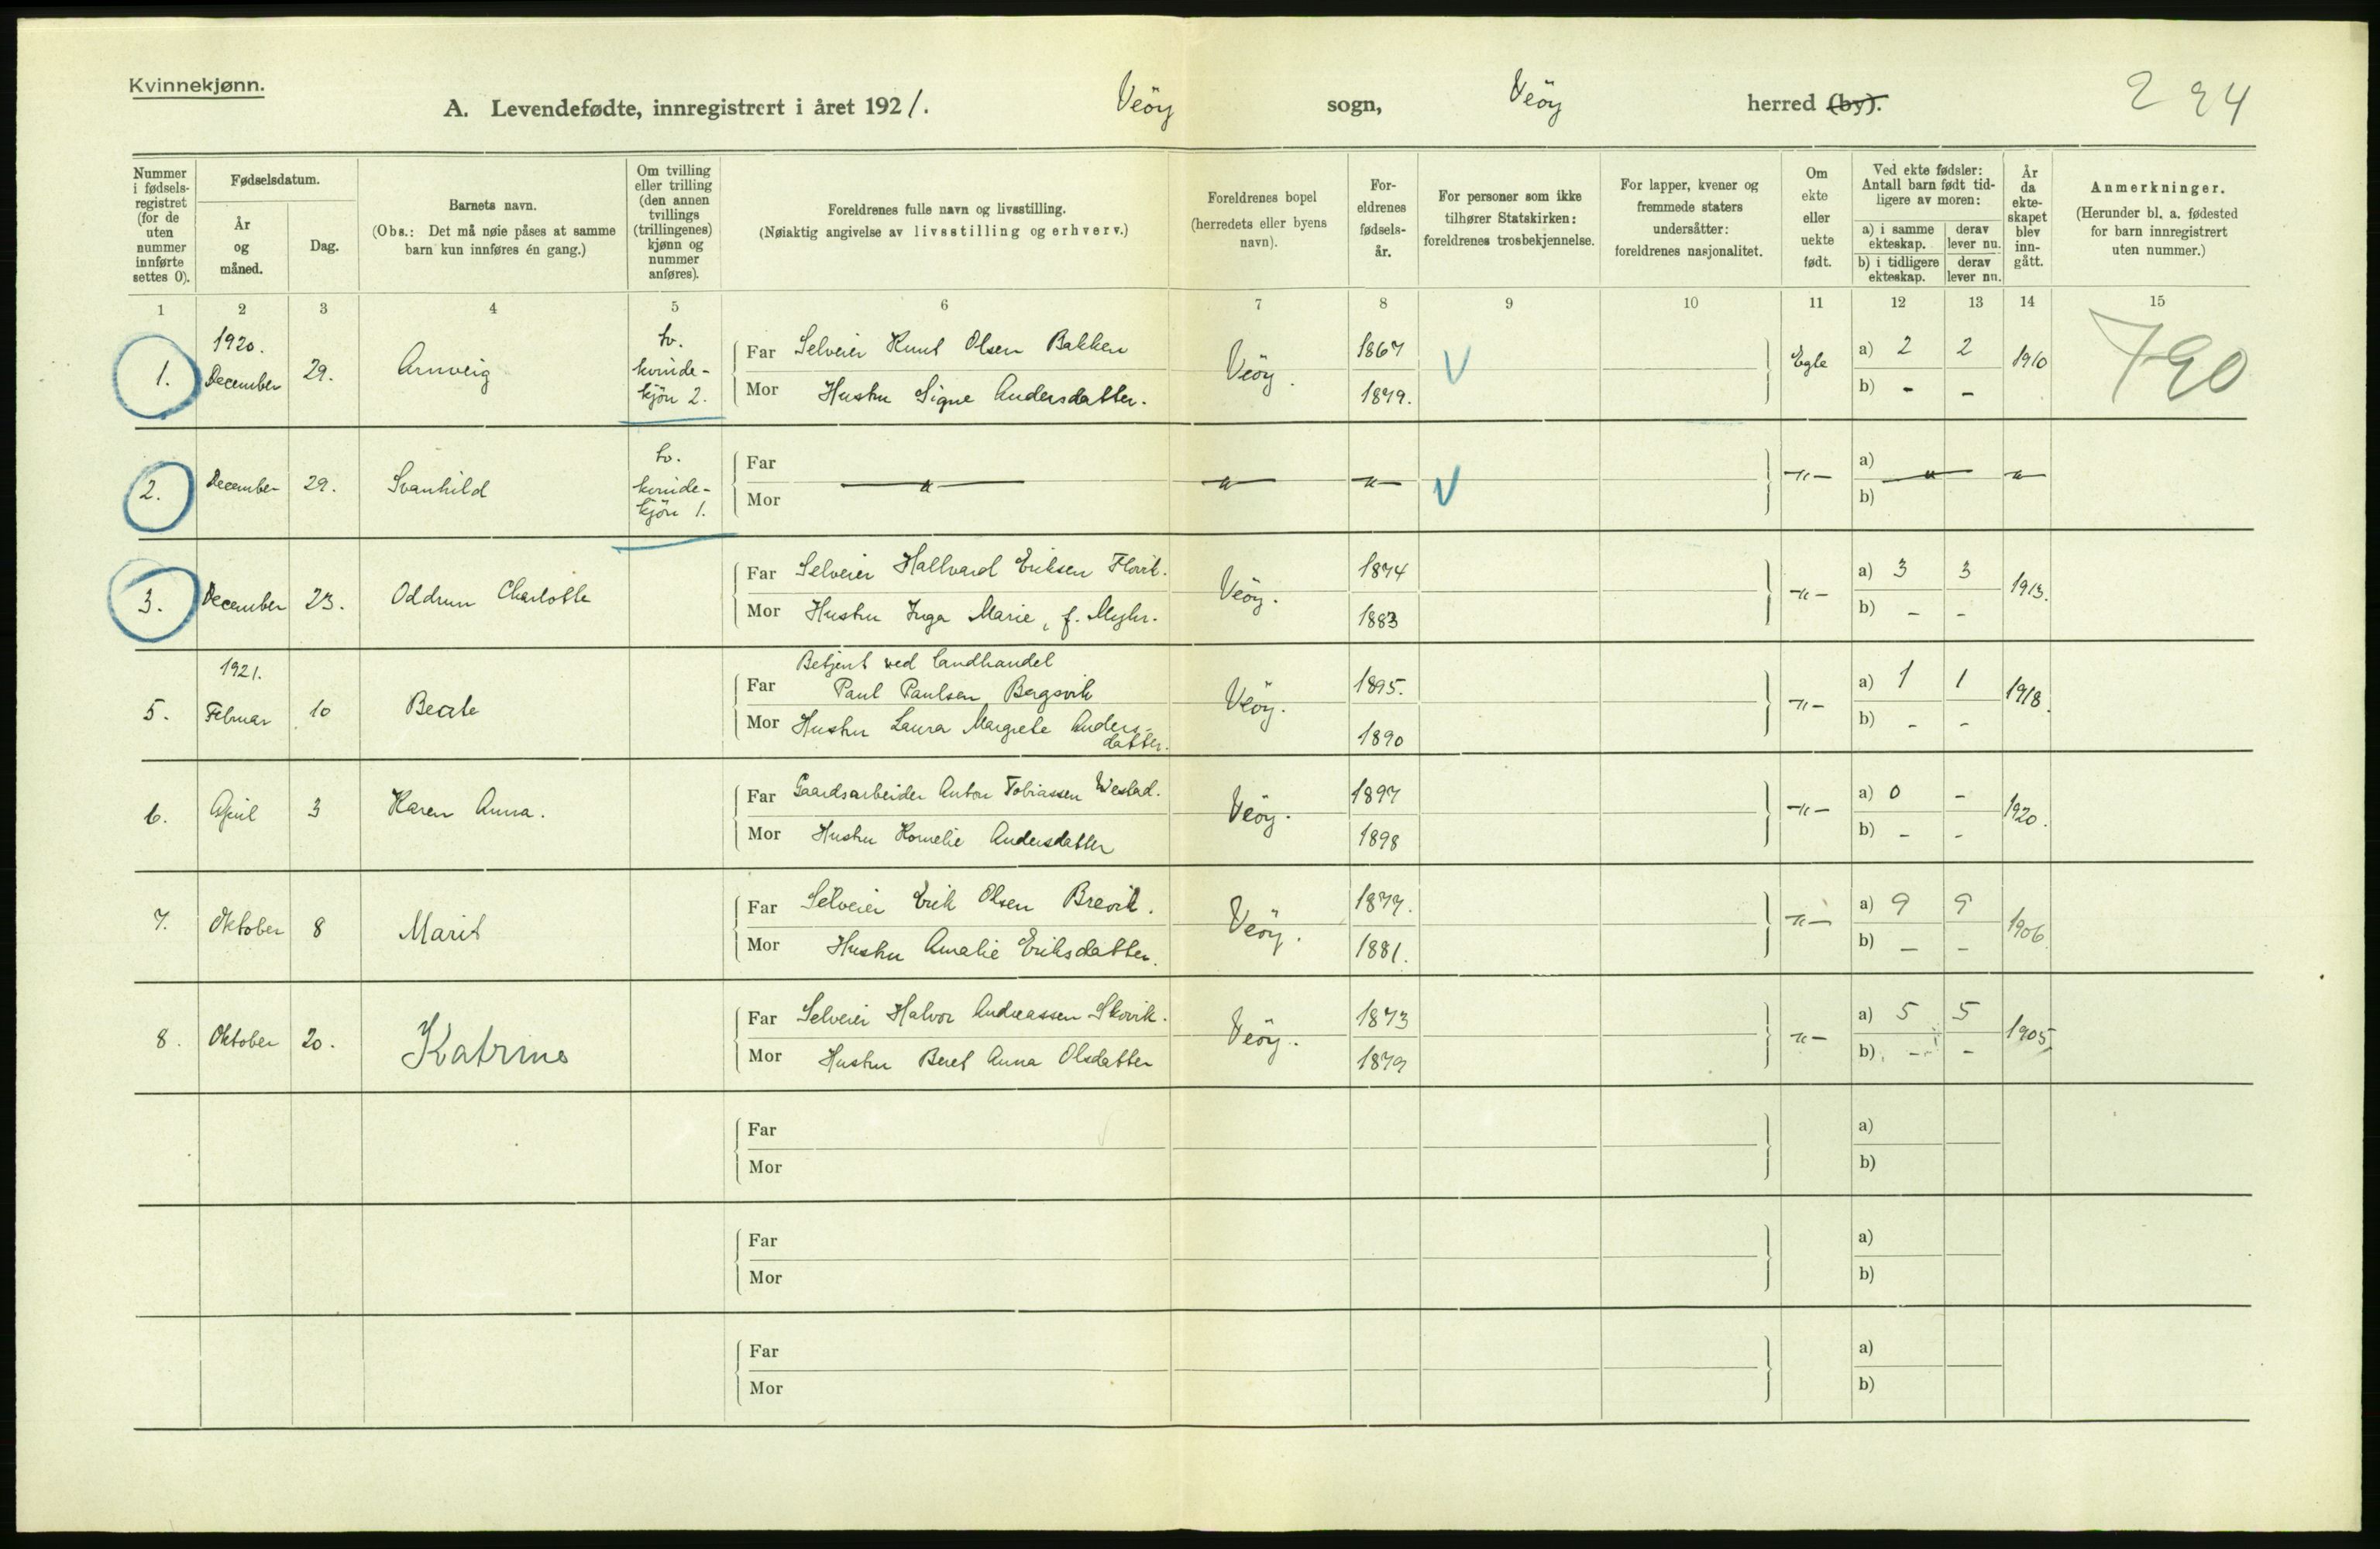 Kvinnekjønn.
A. Levendefødte, innregistrert i året 1921. Veöy sogn, Veöy herred (by). 2 24
Nummer i fødsels-registret (for de uten nummer innførte settes 0).
Fødselsdatum.
År og måned.
Dag.
Barnets navn.
(Obs.: Det må nøie påses at samme barn kun innføres én gang.)
Om tvilling eller trilling (den annen tvillings (trillingenes) kjønn og nummer anføres).
Foreldrenes fulle navn og livsstilling.
(Nøiaktig angivelse av livsstilling og erhverv.)
Foreldrenes bopel (herredets eller byens navn).
For-eldrenes fødsels-år.
For personer som ikke tilhører Statskirken: foreldrenes trosbekjennelse.
For lapper, kvener og fremmede staters undersåtter: foreldrenes nasjonalitet.
Om ekte eller uekte født.
Ved ekte fødsler: Antall barn født tid-ligere av moren:
a) i samme ekteskap. derav lever nu.
b) i tidligere ekteskap. derav lever nu.
År da ekte-skapet blev inn-gått.
Anmerkninger.
(Herunder bl. a. fødested for barn innregistrert uten nummer.)
1 2 3 4 5 6 7 8 9 10 11 12 13 14 15
1. 1920. December 29. Arnveig tv. kvinde-kjön 2.
Far Selveier Knut Olsen Bakken Veöy. 1867 V Egte a) 2 2 1910 790
Mor Hustru Signe Andersdatter. 1879. b) - -
2. December 29. Svanhild tv. kvinde-kjön 1.
Far —„— —„— —„— V —„— a) —„— —„—
Mor b)
3. December 23. Oddrun Charlotte
Far Selveier Hallvard Eriksen Flovik. Veöy. 1874 —„— a) 3 3 1913.
Mor Hustru Inga Marie, f. Myhr. 1883 b) - -
5. 1921. Februar 10 Beate
Betjent ved landhandel
Far Paul Paulsen Bergsvik Veöy. 1895. —„— a) 1 1 1918.
Mor Hustru Laura Margrete Anders-datter. 1890 b) - -
6. April 3 Karen Anna.
Far Gaardsarbeider Anton Tobiassen Westad. Veöy. 1897 —„— a) 0 - 1920.
Mor Hustru Kornelie Andersdatter 1898 b) - -
7. Oktober 8 Marit
Far Selveier Erik Olsen Brevik. Veöy. 1877. —„— a) 9 9 1906
Mor Hustru Amalie Eriksdatter. 1881. b) - -
8. Oktober 20. Katrine
Far Selveier Halvor Andreassen Skovik. Veöy. 1873 —„— a) 5 5 1905
Mor Hustru Beret Anna Olsdatter 1879 b) - -
Far a)
Mor b)
Far a)
Mor b)
Far a)
Mor b)